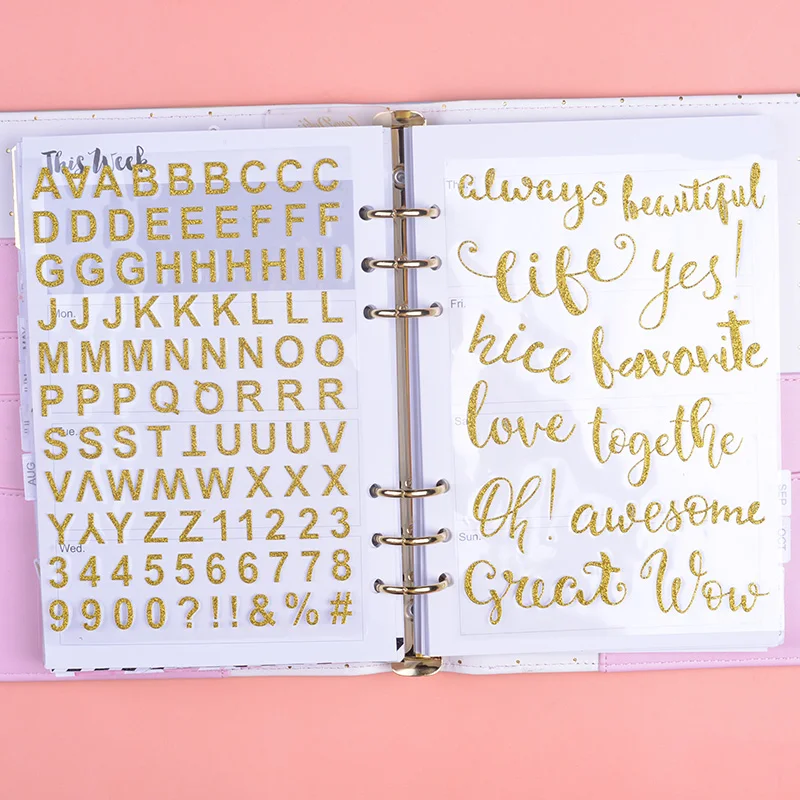 This Week
AAABBBCCC
DDDEEEFFF
GGGHHHHIII
Mon.
JJJKKKLLL
MMMNNNOO
PPPQQRRR
Tue.
SSSTTUUUV
VVWWWXXX
YYYZZ11223
Wed.
3445566778
9900?!!&%#
AUG
always beautiful
life yes!
Fri.
nice favorite
love togethe
Oh! awesome
Sun.
Great Wow
SEP
OCT